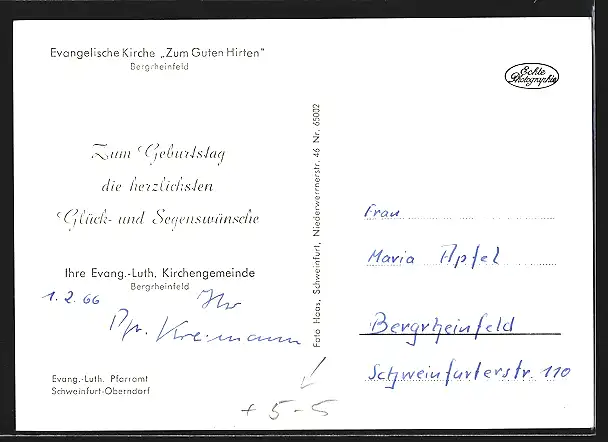 Evangelische Kirche „Zum Guten Hirten"
Bergrheinfeld
Echte
Photographie
Zum Geburtstag
die herzlichsten
Glück- und Segenswünsche
Ihre Evang.-Luth. Kirchengemeinde
Bergrheinfeld
1.2.66 Ihr
Pfr. Kreimann
Evang.-Luth. Pfarramt
Schweinfurt-Oberndorf
Foto Haas, Schweinfurt, Niederwerrnerstr. 46 Nr. 65002
Frau
Maria Apfel
Bergrheinfeld
Schweinfurterstr 110
+ 5 - 5